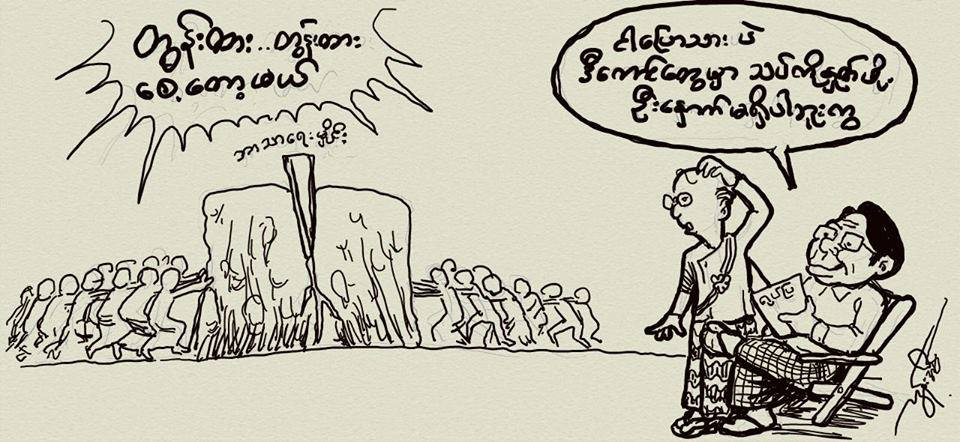 တွန်းထား..တွန်းထား
စေ့တော့မယ်
ဘာသာရေးမှိုင်း
ငါပြောသားပဲ
ဒီကောင်တွေမှာ သပ်ကိုနှုတ်ဖို့
ဦးနှောက်မရှိပါဘူးကွ